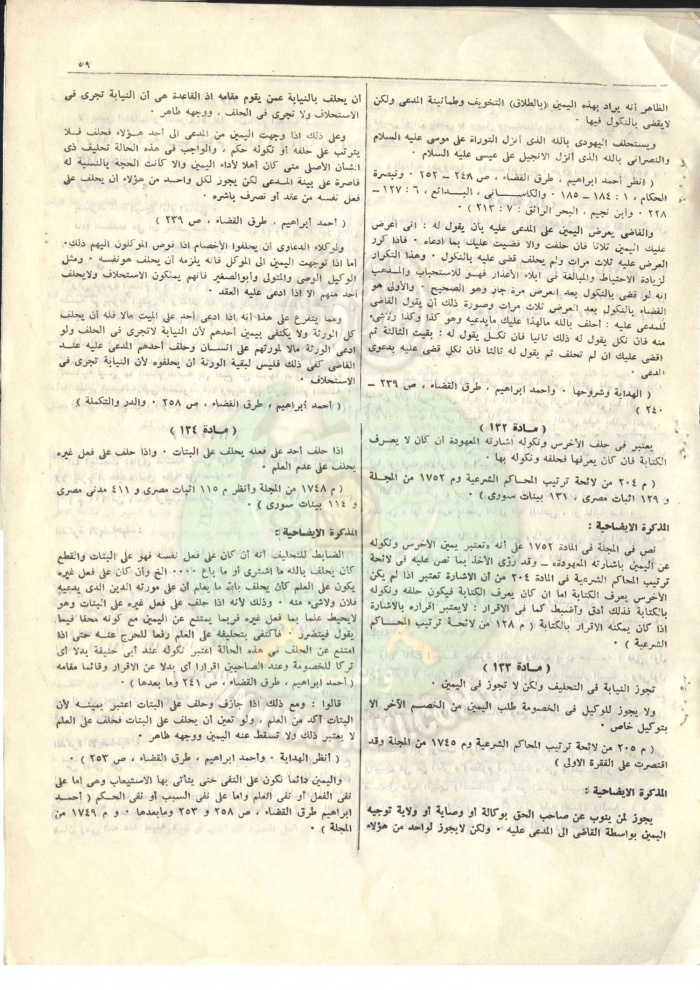 ٥٩
الظاهر أنه يراد بهذه اليمين (بالطلاق) التخويف وطمأنينة المدعى ولكن
لايقضى بالنكول فيها ٠
ويستحلف اليهودى بالله الذى أنزل التوراة على موسى عليه السلام
والنصرانى بالله الذى أنزل الانجيل على عيسى عليه السلام ٠
( انظر أحمد ابراهيم ، طرق القضاء ، ص ٢٤٨ ــ ٢٥٢ ٠ وتبصرة
الحكام ، ١ : ١٨٤ ــ ١٨٥ ٠ والكاسانى ، البدائع ، ٦ : ٢٢٧ ــ
٢٢٨ ٠ وأبن نجيم ، البحر الرائق : ٧ : ٢١٣ ) ٠
والقاضى يعرض اليمين على المدعى عليه بأن يقول له : انى أعرض
عليك اليمين ثلاثا فان حلفت والا قضيت عليك بما ادعاه ٠ فاذا كرر
العرض عليه ثلاث مرات ولم يحلف قضى عليه بالنكول ٠ وهذا التكرار
لزيادة الاحتياط والمبالغة فى ابلاء الأعذار فهو للاستحباب والمذهب
انه لو قضى بالنكول بعد العرض مرة جاز وهو الصحيح ٠ والأولى هو
القضاء بالنكول بعد العرض ثلاث مرات وصورة ذلك أن يقول القاضى
للمدعى عليه : أحلف بالله مالهذا عليك مايدعيه وهو كذا وكذا ولاشىء
منه فان نكل يقول له ذلك ثانيا فان نكل يقول له : بقيت الثالثة ثم
اقضى عليك ان لم تحلف ثم يقول له ثالثا فان نكل قضى عليه بدعوى
المدعى ٠
( الهداية وشروحها ٠ وأحمد ابراهيم ، طرق القضاء ، ص ٢٣٩ ــ
٢٤٠ )
( مـادة ١٣٢ )
يعتبر فى حلف الأخرس ونكوله اشارته المعهودة ان كان لا يعرف
الكتابة فان كان يعرفها فحلفه ونكوله بها ٠
( م ٢٠٤ من لائحة ترتيب المحاكم الشرعية وم ١٧٥٢ من المجلة
و ١٢٩ اثبات مصرى ، ١٣١ بينات سورى ) ٠
المذكرة الايضاحية :
نص فى المجلة فى المادة ١٧٥٢ على أنه «تعتبر يمين الأخرس ونكوله
عن اليمين باشارته المعهودة» ــ وقد رؤى الأخذ بما نص عليه فى لائحة
ترتيب المحاكم الشرعية فى المادة ٢٠٤ من أن الاشارة تعتبر اذا لم يكن
الأخرس يعرف الكتابة اما ان كان يعرف الكتابة فيكون حلفه ونكوله
بالكتابة فذلك أدق وأضبط كما فى الاقرار : لايعتبر اقراره بالاشارة
اذا كان يمكنه الاقرار بالكتابة ( م ١٢٨ من لائحة ترتيب المحاكم
الشرعية ) ٠
( مـادة ١٣٣ )
تجوز النيابة فى التحليف ولكن لا تجوز فى اليمين ٠
ولا يجوز للوكيل فى الخصومة طلب اليمين من الخصم الآخر الا
بتوكيل خاص ٠
( م ٢٠٥ من لائحة ترتيب المحاكم الشرعية وم ١٧٤٥ من المجلة وقد
اقتصرت على الفقرة الاولى )
المذكرة الايضاحية :
يجوز لمن ينوب عن صاحب الحق بوكالة أو وصاية أو ولاية توجيه
اليمين بواسطة القاضى الى المدعى عليه ٠ ولكن لايجوز لواحد من هؤلاء
أن يحلف بالنيابة عمن يقوم مقامه اذ القاعدة هى أن النيابة تجرى فى
الاستحلاف ولا تجرى فى الحلف ، ووجهه ظاهر ٠
وعلى ذلك اذا وجهت اليمين من المدعى الى أحد هؤلاء فحلف فلا
يترتب على حلفه أو نكوله حكم ، والواجب فى هذه الحالة تحليف ذى
الشأن الأصلى متى كان أهلا لأداء اليمين والا كانت الحجة بالنسبة له
قاصرة على بينة المدعى لكن يجوز لكل واحد من هؤلاء أن يحلف على
فعل نفسه من عقد أو تصرف باشره ٠
( أحمد أبراهيم ، طرق القضاء ، ص ٢٣٩ )
ولوكلاء الدعاوى أن يحلفوا الأخصام اذا فوض الموكلون اليهم ذلك٠
اما اذا توجهت اليمين الى الموكل فانه يلزمه أن يحلف هونفسه ٠ ومثل
الوكيل الوصى والمتولى وأبوالصغير فانهم يملكون الاستحلاف ولايحلف
أحد منهم الا اذا ادعى عليه العقد ٠
ومما يتفرع على هذا انه اذا ادعى أحد على الميت مالا فله أن يحلف
كل الورثة ولا يكتفى بيمين أحدهم لأن النيابة لاتجرى فى الحلف ولو
ادعى الورثة مالا لمورثهم على انسان وحلف أحدهم المدعى عليه عند
القاضى كفى ذلك فليس لبقية الورثة أن يحلفوه لأن النيابة تجرى فى
الاستحلاف ٠
( أحمد أبراهيم ، طرق القضاء ، ص ٢٥٨ ٠ والدر والتكملة )
( مـادة ١٣٤ )
اذا حلف أحد على فعله يحلف على البتات ٠ واذا حلف على فعل غيره
يحلف على عدم العلم ٠
( م ١٧٤٨ من المجلة وأنظر م ١١٥ اثبات مصرى و ٤١١ مدنى مصرى
و ١١٤ بينات سورى ) ٠
المذكرة الايضاحية :
الضابط للتحليف أنه أن كان على فعل نفسه فهو على البتات والقطع
كأن يحلف بالله ما اشترى أو ما باع ٠٠٠٠ الخ وأن كان على فعل غيره
يكون على العلم كأن يحلف بالله ما يعلم أن على مورثه الدين الذى يدعيه
فلان ولاشىء منه ٠ وذلك لأنه اذا حلف على فعل غيره على البتات وهو
لايحيط علما بما فعل غيره فربما يمتنع عن اليمين مع كونه محقا فيما
يقول فيتضرر ٠ فاكتفى بتحليفه على العلم رفعا للحرج عنه حتى اذا
امتنع عن الحلف فى هذه الحالة اعتبر نكوله عند أبى حنيفة بدلا أى
تركا للخصومة وعند الصاحبين اقرارا أى بدلا عن الاقرار وقائما مقامه
( أحمد ابراهيم ، طرق القضاء ، ص ٢٤١ وما بعدها ) ٠
قالوا : ومع ذلك اذا جازف وحلف على البتات اعتبر يمينه لأن
البتات آكد من العلم ، ولو تعين أن يحلف على البتات فحلف على العلم
لا يعتبر ذلك ولا تسقط عنه اليمين ووجهه ظاهر ٠
( أنظر الهداية ٠ وأحمد ابراهيم ، طرق القضاء ، ص ٢٥٣ ) ٠
واليمين دائما تكون على النفى حتى يتأتى بها الاستيعاب وهى اما على
نفى الفعل أو نفى العلم واما على نفى السبب أو نفى الحكم ( أحمد
ابراهيم طرق القضاء ، ص ٢٥٨ و ٢٥٣ ومابعدها ٠ و م ١٧٤٩ من
المجلة ) ٠